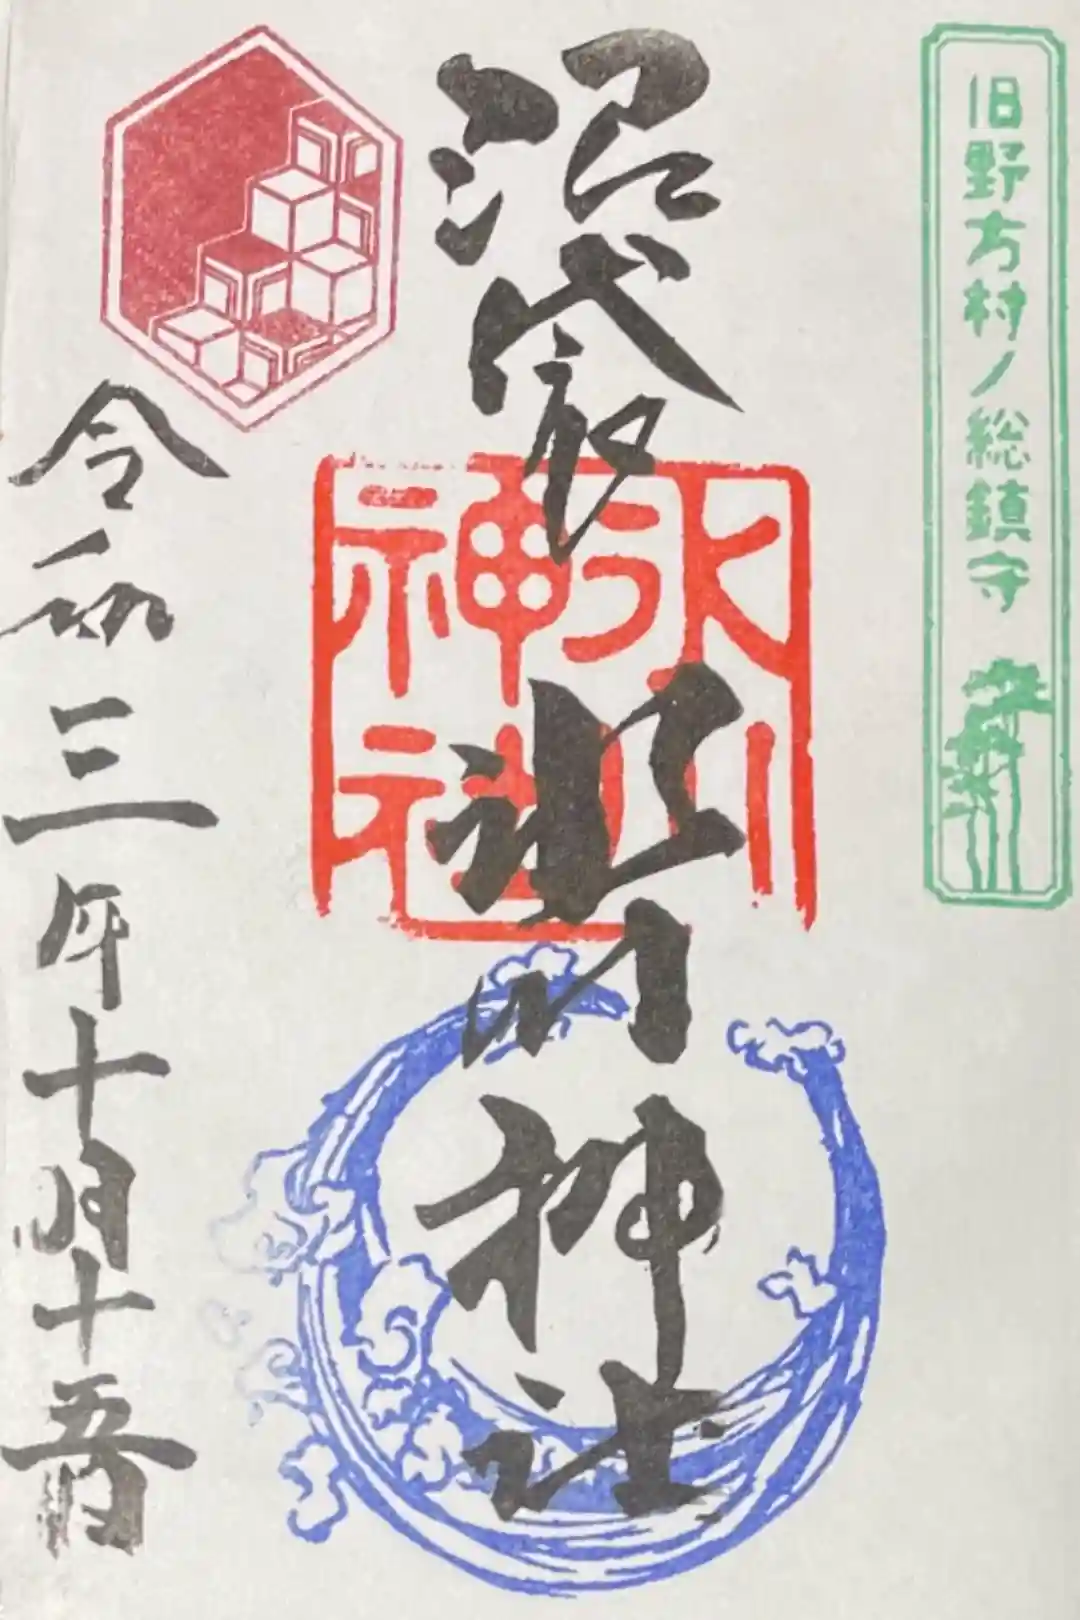 旧野方村ノ総鎮守
沼袋氷川神社
氷川神社
令和三年十月十五日